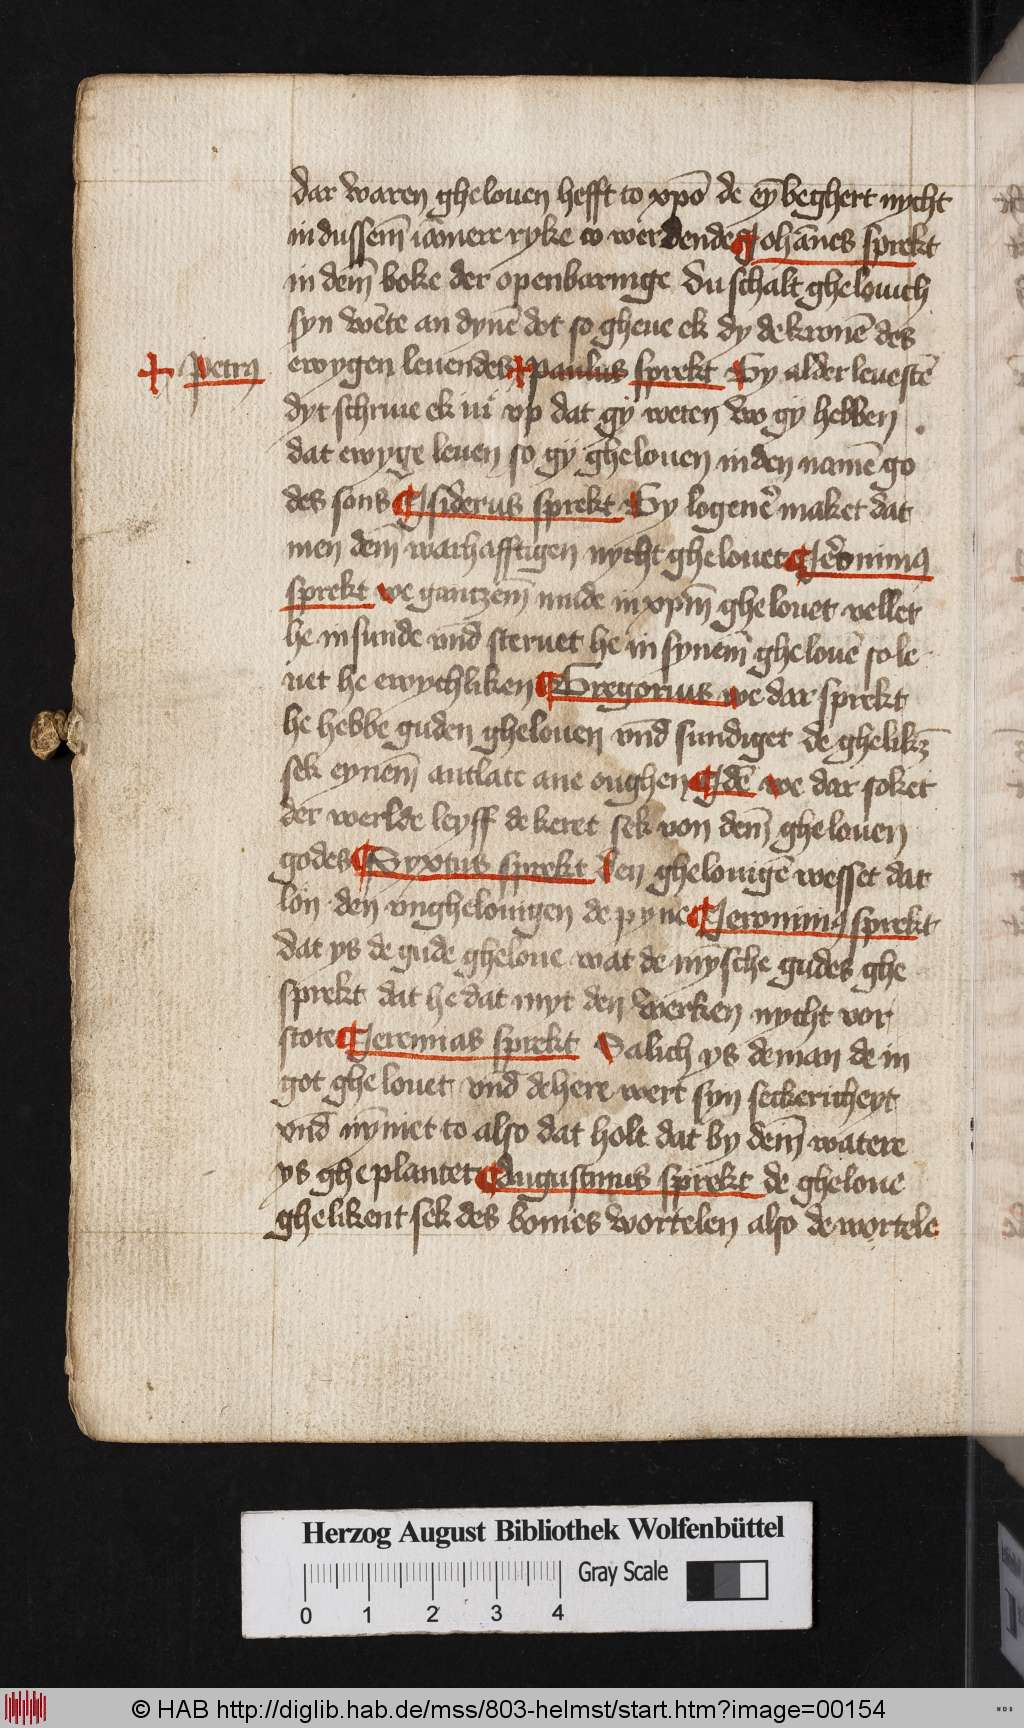 dar waren ghelouen hefft to xpō de eȳ beghert nycht
in dussem̄ iām̄ere ryke to werdende Johānes sprekt
in dem̄ boke der openbaringe Du schalt ghelouich
syn wēte an dynē dot so gheue ek dy de kronē des
+ Petrꝰ
ewygen leuendes + paulus sprekt Gy alder leuestē
dyt schriue ek iu vp dat gy weten wo gy hebben
dat ewyge leuen so gy ghelouen in den namē go
des sons ¶ Isiderus sprekt Gy logener maket dat
men dem̄ warhafftigen nycht ghelouet ¶ Ieronimꝰ
sprekt we gantzem̄ mude in xpm̄ ghelouet vellet
he in sunde vnd̄ steruet he in synem̄ ghelouē so le
uet he ewychliken ¶ Gregorius we dar sprekt
he hebbe guden ghelouen vnd̄ sundiget de ghelikz
sek eynem̄ antlatt ane oughen ¶ Idē we dar soket
der werlde leyff de keret sek von dem̄ ghelouen
godes ¶ Syxtus sprekt den ghelouigē wesset dat
lon den vnghelouigen de pyne ¶ Ieronimꝰ sprekt
dat ys de gude gheloue wat de mȳsche gudes ghe
sprekt dat he dat myt den werken nycht vor
stote ¶ Ieremias sprekt Salich ys de man de in
got ghelouet vnd̄ de here wert syn seckericheyt
vnd̄ nȳmet to also dat holt dat by dem̄ watere
ys gheplantet ¶ Augustinus sprekt de gheloue
ghelikent sek des bomes wortelen also de wortele
Herzog August Bibliothek Wolfenbüttel
Gray Scale
0 1 2 3 4
© HAB http://diglib.hab.de/mss/803-helmst/start.htm?image=00154